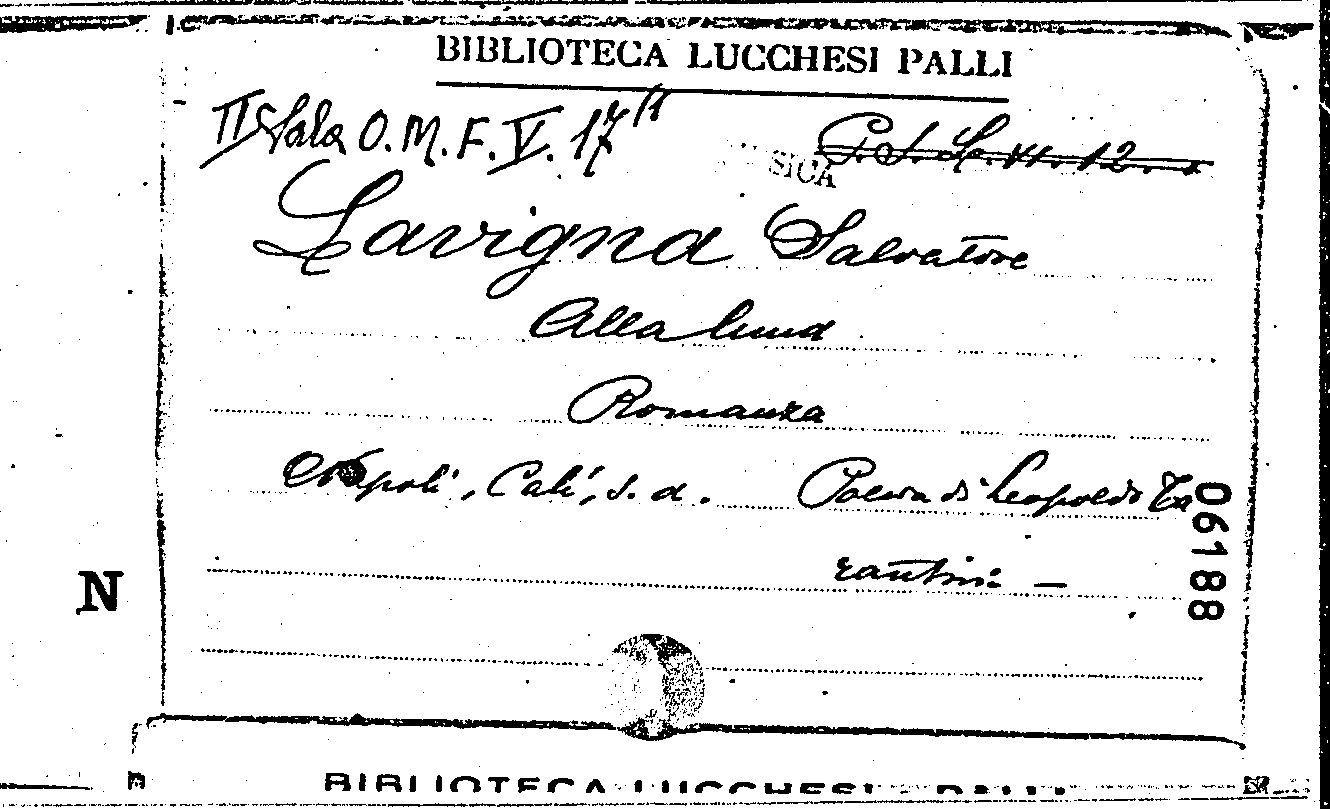 BIBLIOTECA LUCCHESI PALLI
II Sala O. M. F. V. 17¹¹
SICA
Lavigna Salvatore
Alla luna
Romanza
Napoli, Calí, s. d. Poesia di Leopoldo Ta
rantini —
06188
N
BIBLIOTECA LUCCHESI PALLI